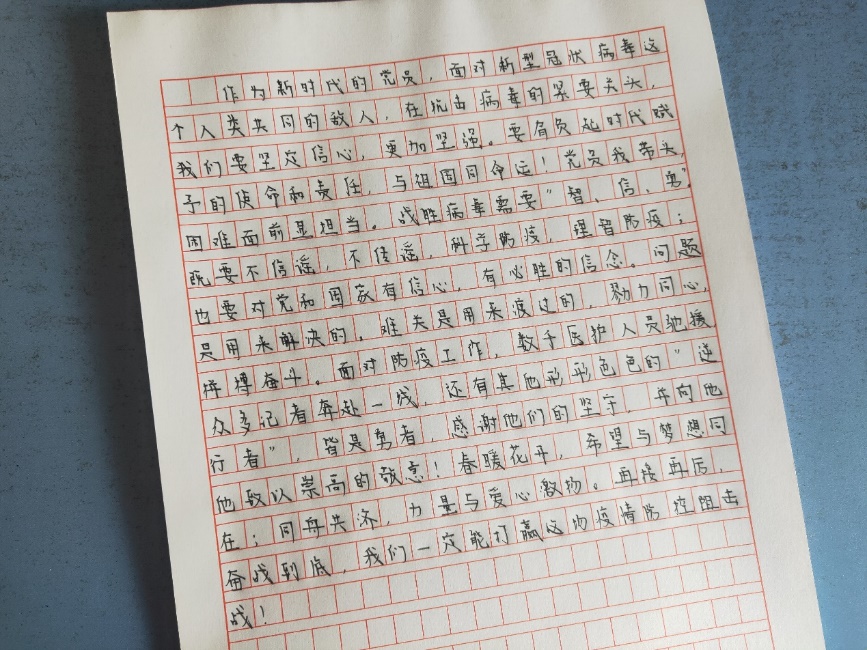 作为新时代的党员，面对新型冠状病毒这
个人类共同的敌人，在抗击病毒的紧要关头，
我们要坚定信心，更加坚强。要肩负起时代赋
予的使命和责任，与祖国同命运！党员我带头，
困难面前显担当。战胜病毒需要“智、信、勇”，
既要不信谣，不传谣，科学防疫，理智防疫；
也要对党和国家有信心，有必胜的信念。问题
是用来解决的，难关是用来渡过的，勠力同心，
拼搏奋斗。面对防疫工作，数千医护人员驰援
众多记者奔赴一线，还有其他形形色色的“逆
行者”，皆是勇者，感谢他们的坚守，并向他
他致以崇高的敬意！春暖花开，希望与梦想同
在；同舟共济，力量与爱心激扬。再接再厉，
奋战到底，我们一定能打赢这场疫情防控阻击
战！